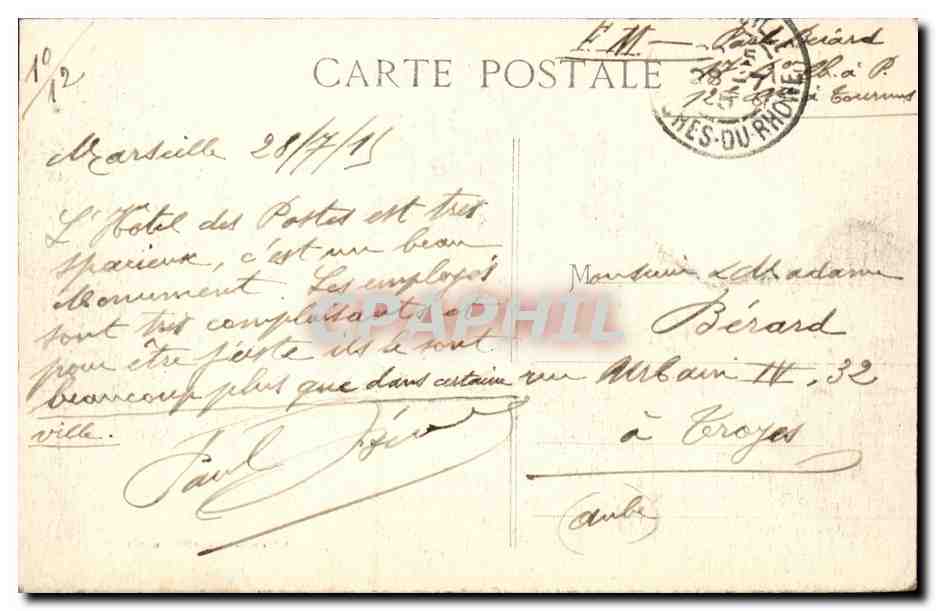 10/12
CARTE POSTALE
F.M. — Paul Bérard
à P.
à Tournus
28
CHES-DU-RHONE
Marseille 28/7/15
L'Hôtel des Postes est très
spacieux, c'est un beau
Monument. Les employés
sont très complaisants et
pour être juste ils le sont
beaucoup plus que dans certaine
ville.
Paul Bérard
Monsieur & Madame
Bérard
rue Urbain IV, 32
à Troyes
(Aube)
CPAPHIL